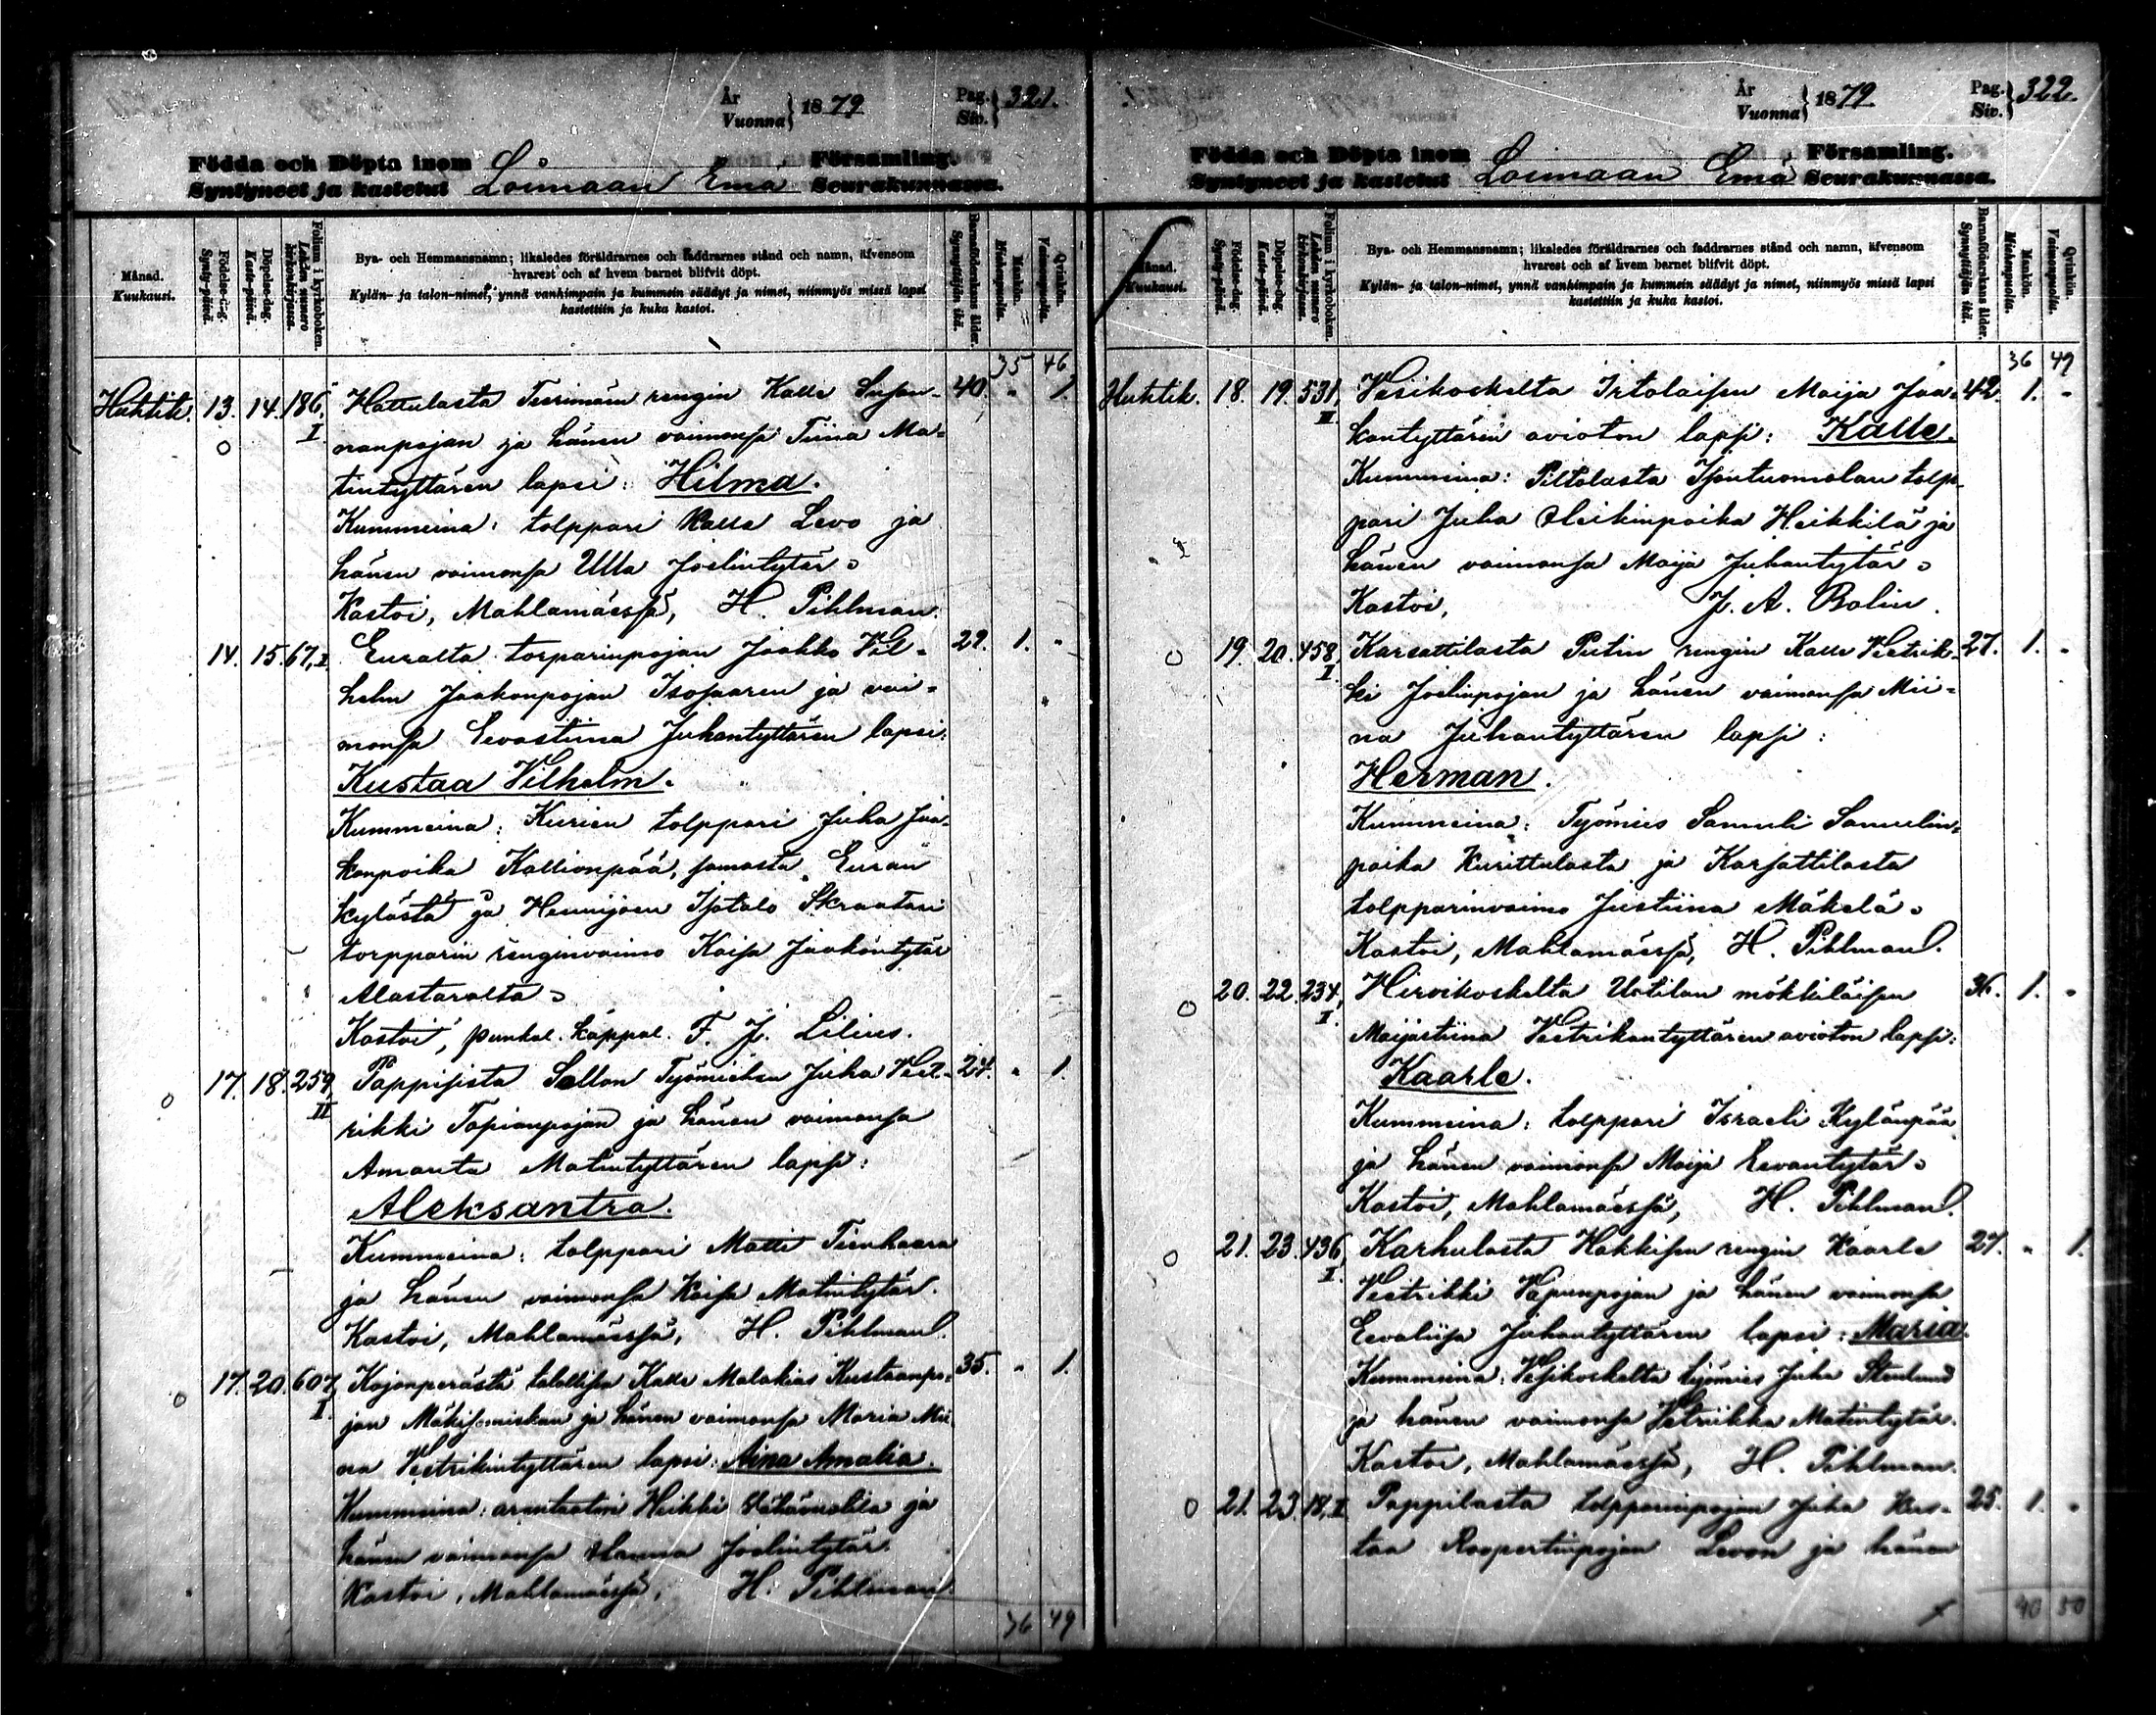 År
Vuonna } 1879
Pag.
Siv. } 321.
Födda och Döpta inom Församling.
Syntyneet ja kastetut Loimaan Emä Seurakunnassa.
Månad.
Kuukausi.
Födelse-dag.
Synty-päivä.
Döpelse-dag.
Kaste-päivä.
Folium i kyrkoboken.
Lehden numero kirkonkirjassa.
Bya- och Hemmansnamn; likaledes föräldrarnes och faddrarnes stånd och namn, äfvensom
hvarest och af hvem barnet blifvit döpt.
Kylän- ja talon-nimet, ynnä vanhimpain ja kummein säädyt ja nimet, niinmyös missä lapsi
kastettiin ja kuka kastoi.
Barnaföderskans ålder.
Synnyttäjän ikä.
Mankön.
Miehenpuolia.
Qvinkön.
Vaimonpuolia.
35 46
Huhtik. 13. 14. 186, I Hattulasta rengin Kalle - 40. " 1.
nanpojan ja hänen vaimonsa Tiina Ma-
tintyttären lapsi: Hilma.
Kummeina: tolppari Kalle Levo ja
hänen vaimonsa Ulla Joelintytär.
Kastoi, Mahlamäessä, H. Pihlman.
14. 15. 67, I Euralta torparinpojan Jaakko Vil- 29. 1. "
helm Jaakonpojan Isosaaren ja vai-
monsa Eevastiina Juhantyttären lapsi:
Kustaa Vilhelm.
Kummeina: Kurien tolppari Juha Jaa-
konpoika Kallionpää, samasta Euran
kylästä ja Hennijoen Isotalo Skraatari
torpparin renginvaimo Kaisa Jaakontytär
Alastarolta.
Kastoi, punkal. kappal. F. J. Lilius.
17. 18. 259, II Pappisista Sallon Työmiehen Juha Vest- 24. " 1.
rikki Tapionpojan ja hänen vaimonsa
Amanta Matintyttären lapsi:
Aleksantra.
Kummeina: tolppari Matti Tienhaara
ja hänen vaimonsa Kaisa Matintytär.
Kastoi, Mahlamäessä, H. Pihlman.
17. 20. 607, I Kojonperästä talollisen Kalle Malakias Kustaanpo- 35. " 1.
jan ja hänen vaimonsa Maria Mii-
na Vestrikintyttären lapsi: Aina Amalia.
Kummeina: arentaatori Heikki ja
hänen vaimonsa Hanna Joelintytär.
Kastoi, Mahlamäessä, H. Pihlman.
36 49
År
Vuonna } 1879
Pag.
Siv. } 322.
Födda och Döpta inom Församling.
Syntyneet ja kastetut Loimaan Emä Seurakunnassa.
Månad.
Kuukausi.
Födelse-dag.
Synty-päivä.
Döpelse-dag.
Kaste-päivä.
Folium i kyrkoboken.
Lehden numero kirkonkirjassa.
Bya- och Hemmansnamn; likaledes föräldrarnes och faddrarnes stånd och namn, äfvensom
hvarest och af hvem barnet blifvit döpt.
Kylän- ja talon-nimet, ynnä vanhimpain ja kummein säädyt ja nimet, niinmyös missä lapsi
kastettiin ja kuka kastoi.
Barnaföderskans ålder.
Synnyttäjän ikä.
Mankön.
Miehenpuolia.
Qvinkön.
Vaimonpuolia.
36 49
Huhtik. 18. 19. 531, III Vesikoskelta Irtolaisen Maija Jaa- 42. 1. "
kontyttären avioton lapsi: Kalle.
Kummeina: Piltolasta Isontuomolan tolp-
pari Juha Heikinpoika Heikkilä ja
hänen vaimonsa Maija Juhantytär.
Kastoi, J. A. Bolin.
19. 20. 458, I Karsattilasta Putin rengin Kalle Vestrik- 27. 1. "
ki Joelinpojan ja hänen vaimonsa Mii-
na Juhantyttären lapsi:
Herman.
Kummeina: Työmies Samuli Samulin-
poika Kurittulasta ja Karsattilasta
tolpparinvaimo Justiina Mäkelä.
Kastoi, Mahlamäessä, H. Pihlman.
20. 22. 234, I Hirvikoskelta Uotilan mökkiläisen 36. 1. "
Maijastiina Vestrikintyttären avioton lapsi:
Kaarle.
Kummeina: tolppari Israeli Kylänpää
ja hänen vaimonsa Maija Eevantytär.
Kastoi, Mahlamäessä, H. Pihlman.
21. 23. 436, I Karhulasta Hakkisen rengin Kaarle 27. " 1.
Vestrikki Vapunpojan ja hänen vaimonsa
Eevaliisa Juhantyttären lapsi: Maria.
Kummeina: Vesikoskelta työmies Juha Stenlund
ja hänen vaimonsa Vetriikka Matintytär.
Kastoi, Mahlamäessä, H. Pihlman.
21. 23. 18, II Pappilasta tolpparinpojan Juha Kus- 25. 1. "
taa Roopertinpojan Levon ja hänen
40 50